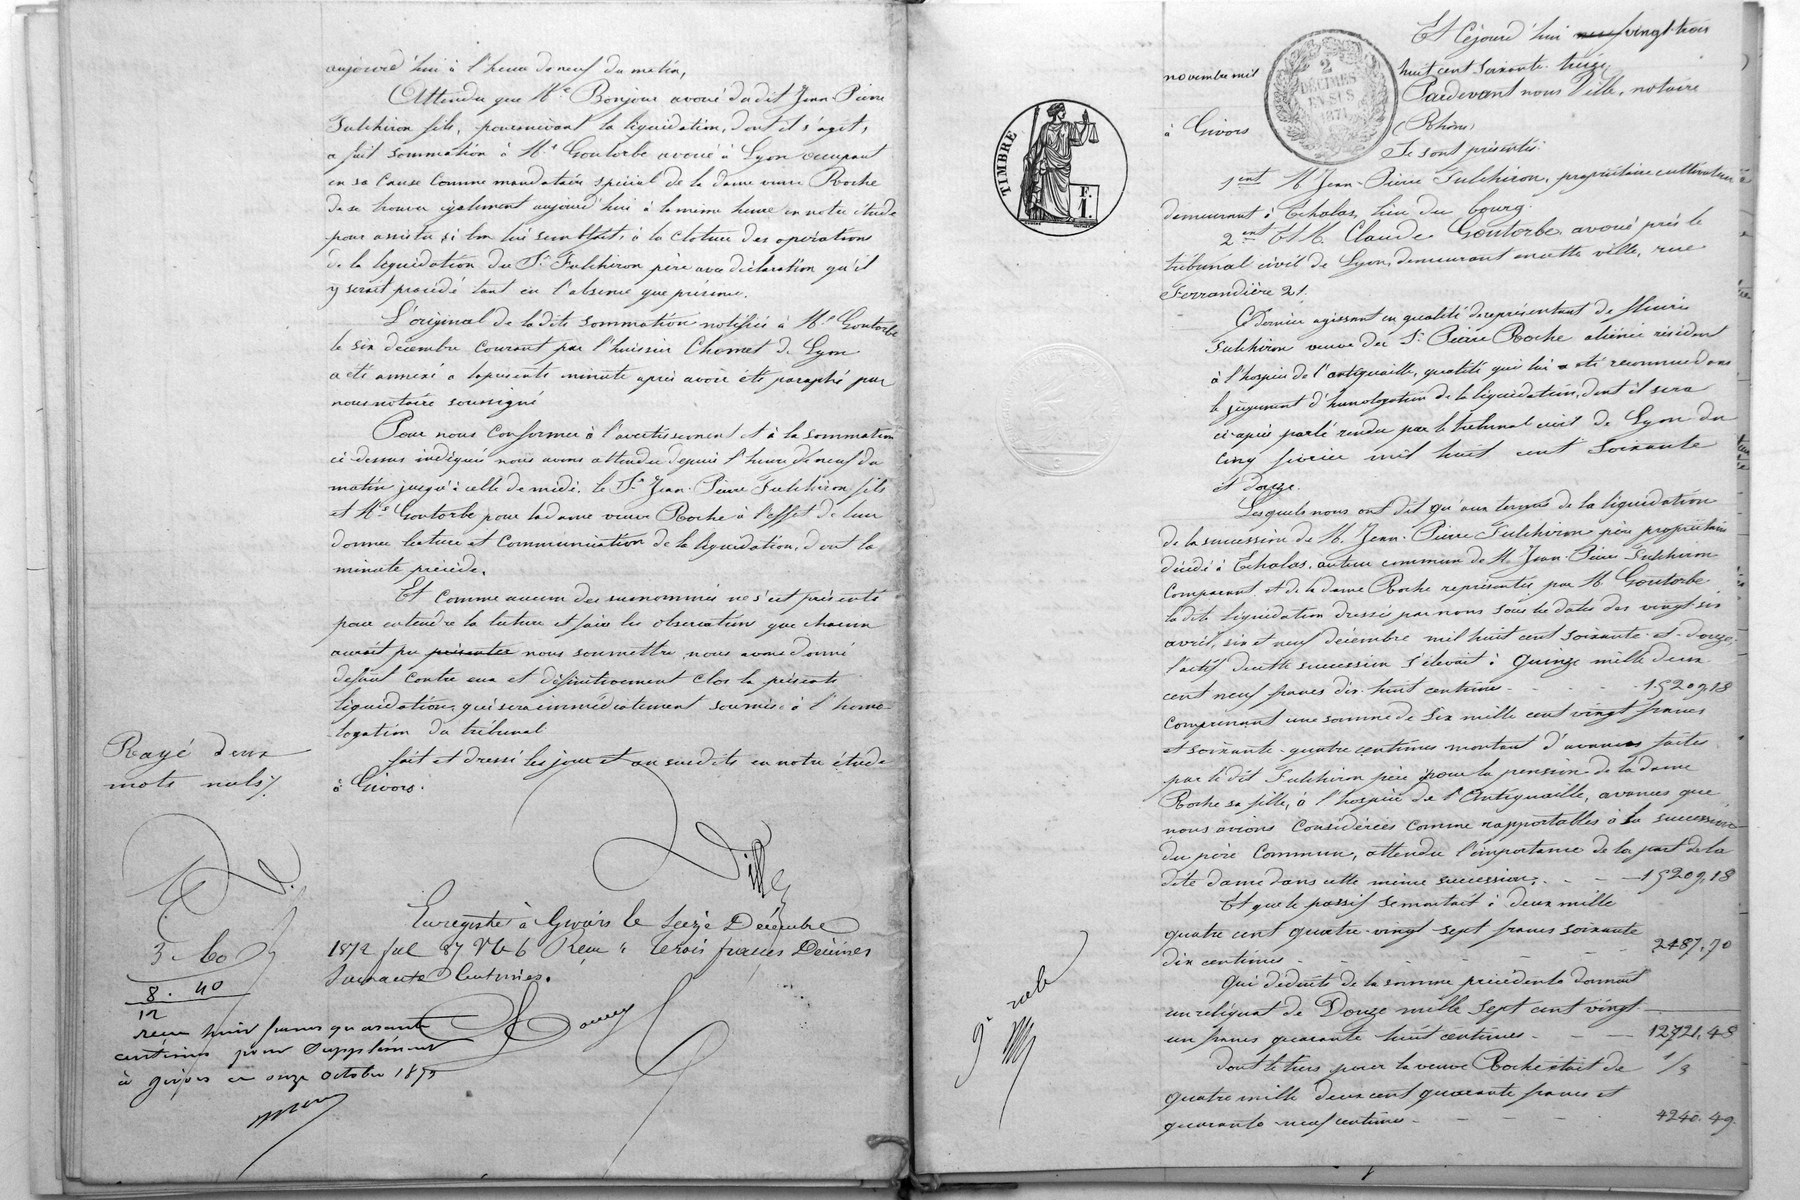 aujourd'hui à l'heure de neuf du matin,
Attendu que Me Bonjour avoué du dit Jean-Pierre
Fulchiron fils, poursuivant la liquidation, dont il s'agit,
a fait sommation à Me Goutorbe avoué à Lyon occupant
en sa cause comme mandataire spécial de la dame veuve Roche
de se trouver également aujourd'hui à la même heure en notre étude
pour assister si bon lui semblait, à la cloture des opérations
de la liquidation du Sr Fulchiron père avec déclaration qu'il
y serait procédé tant en l'absence que présence.
L'original de la dite sommation notifiée à Me Goutorbe
le six décembre courant par l'huissier Chomet de Lyon
a été annexé a la présente minute après avoir été paraphé par
nous notaire soussigné
Pour nous conformer à l'avertissement et à la sommation
ci-dessus indiqués nous avons attendu depuis l'heure de neuf du
matin jusqu'à celle de midi, le Sr Jean-Pierre Fulchiron fils
et Me Goutorbe pour la dame veuve Roche à l'effet de leur
donner lecture et communication de la liquidation, dont la
minute précède.
Et comme aucun des susnommés ne s'est présenté
pour entendre la lecture et faire les observation que chacun
aurait pu présenter nous soumettre, nous avons donné
défaut contre eux et définitivement clos la présente
liquidation, qui sera immédiatement soumise à l'homo-
logation du tribunal
fait et dressé les jour et an susdits en notre étude
à Givors.
Rayé deux
mots nuls
Ville
Enregistré à Givors le seize Décembre
1872 fol 87 Vo C 6 Reçu : trois francs Décimes
soixante Centimes.
3.60
8.40
12
reçu huit francs quarante
centimes pour supplément
à givors ce onze octobre 1873
Et cejourd'hui neuf vingt-trois
novembre mil huit cent soixante-treize
Pardevant nous Ville, notaire
à Givors (Rhône)
Se sont présentés:
1ent M. Jean-Pierre Fulchiron, propriétaire cultivateur
demeurant à Echalas, lieu du bourg.
2ent Et M. Claude Goutorbe avoué près le
tribunal civil de Lyon, demeurant en cette ville, rue
Ferrandière 21
Ce dernier agissant en qualité de représentant de Fleurie
Fulchiron veuve du Sr Pierre Roche aliénée résidant
à l'hospice de l'antiquaille, qualité qui lui a été reconnue dans
le jugement d'homologation de la liquidation, dont il sera
ci-après parlé rendu par le tribunal civil de Lyon du
cinq février mil huit cent soixante
et douze.
Lesquels nous ont dit qu'aux termes de la liquidation
de la succession de M. Jean-Pierre Fulchiron père propriétaire
décédé à Echalas, auteur commun de M. Jean-Pierre Fulchiron
comparant et de la dame Roche représentée par M. Goutorbe
la dite liquidation dressée par nous sous les dates des vingt-six
avril, six et neuf décembre mil huit cent soixante-et-douze,
l'actif de cette succession s'élevait à quinze mille deux
cent neuf francs dix-huit centimes - - - 15209,18
comprenant une somme de six mille cent vingt francs
et soixante-quatre centimes montant d'avances faites
par le dit Fulchiron père pour la pension de la dame
Roche sa fille, à l'hospice de l'Antiquaille, avances que
nous avions considérées comme rapportables à la succession
du père commun, attendu l'importance de la part de la
dite dame dans cette même succession, - - - 15209,18
Et que le passif se montait à deux mille
quatre cent quatre-vingt sept francs soixante
dix centimes - - - 2487,70
Qui déduite de la somme précédente donnait
un reliquat de Douze mille sept cent vingt
un francs quarante huit centimes - - - 12721,48
dont le tiers pour la veuve Roche était de 1/3
quatre mille deux cent quarante francs et
quarante-neuf centimes - - - 4240.49
2
DÉCIMES
EN SUS
1871
TIMBRE
F.
1.